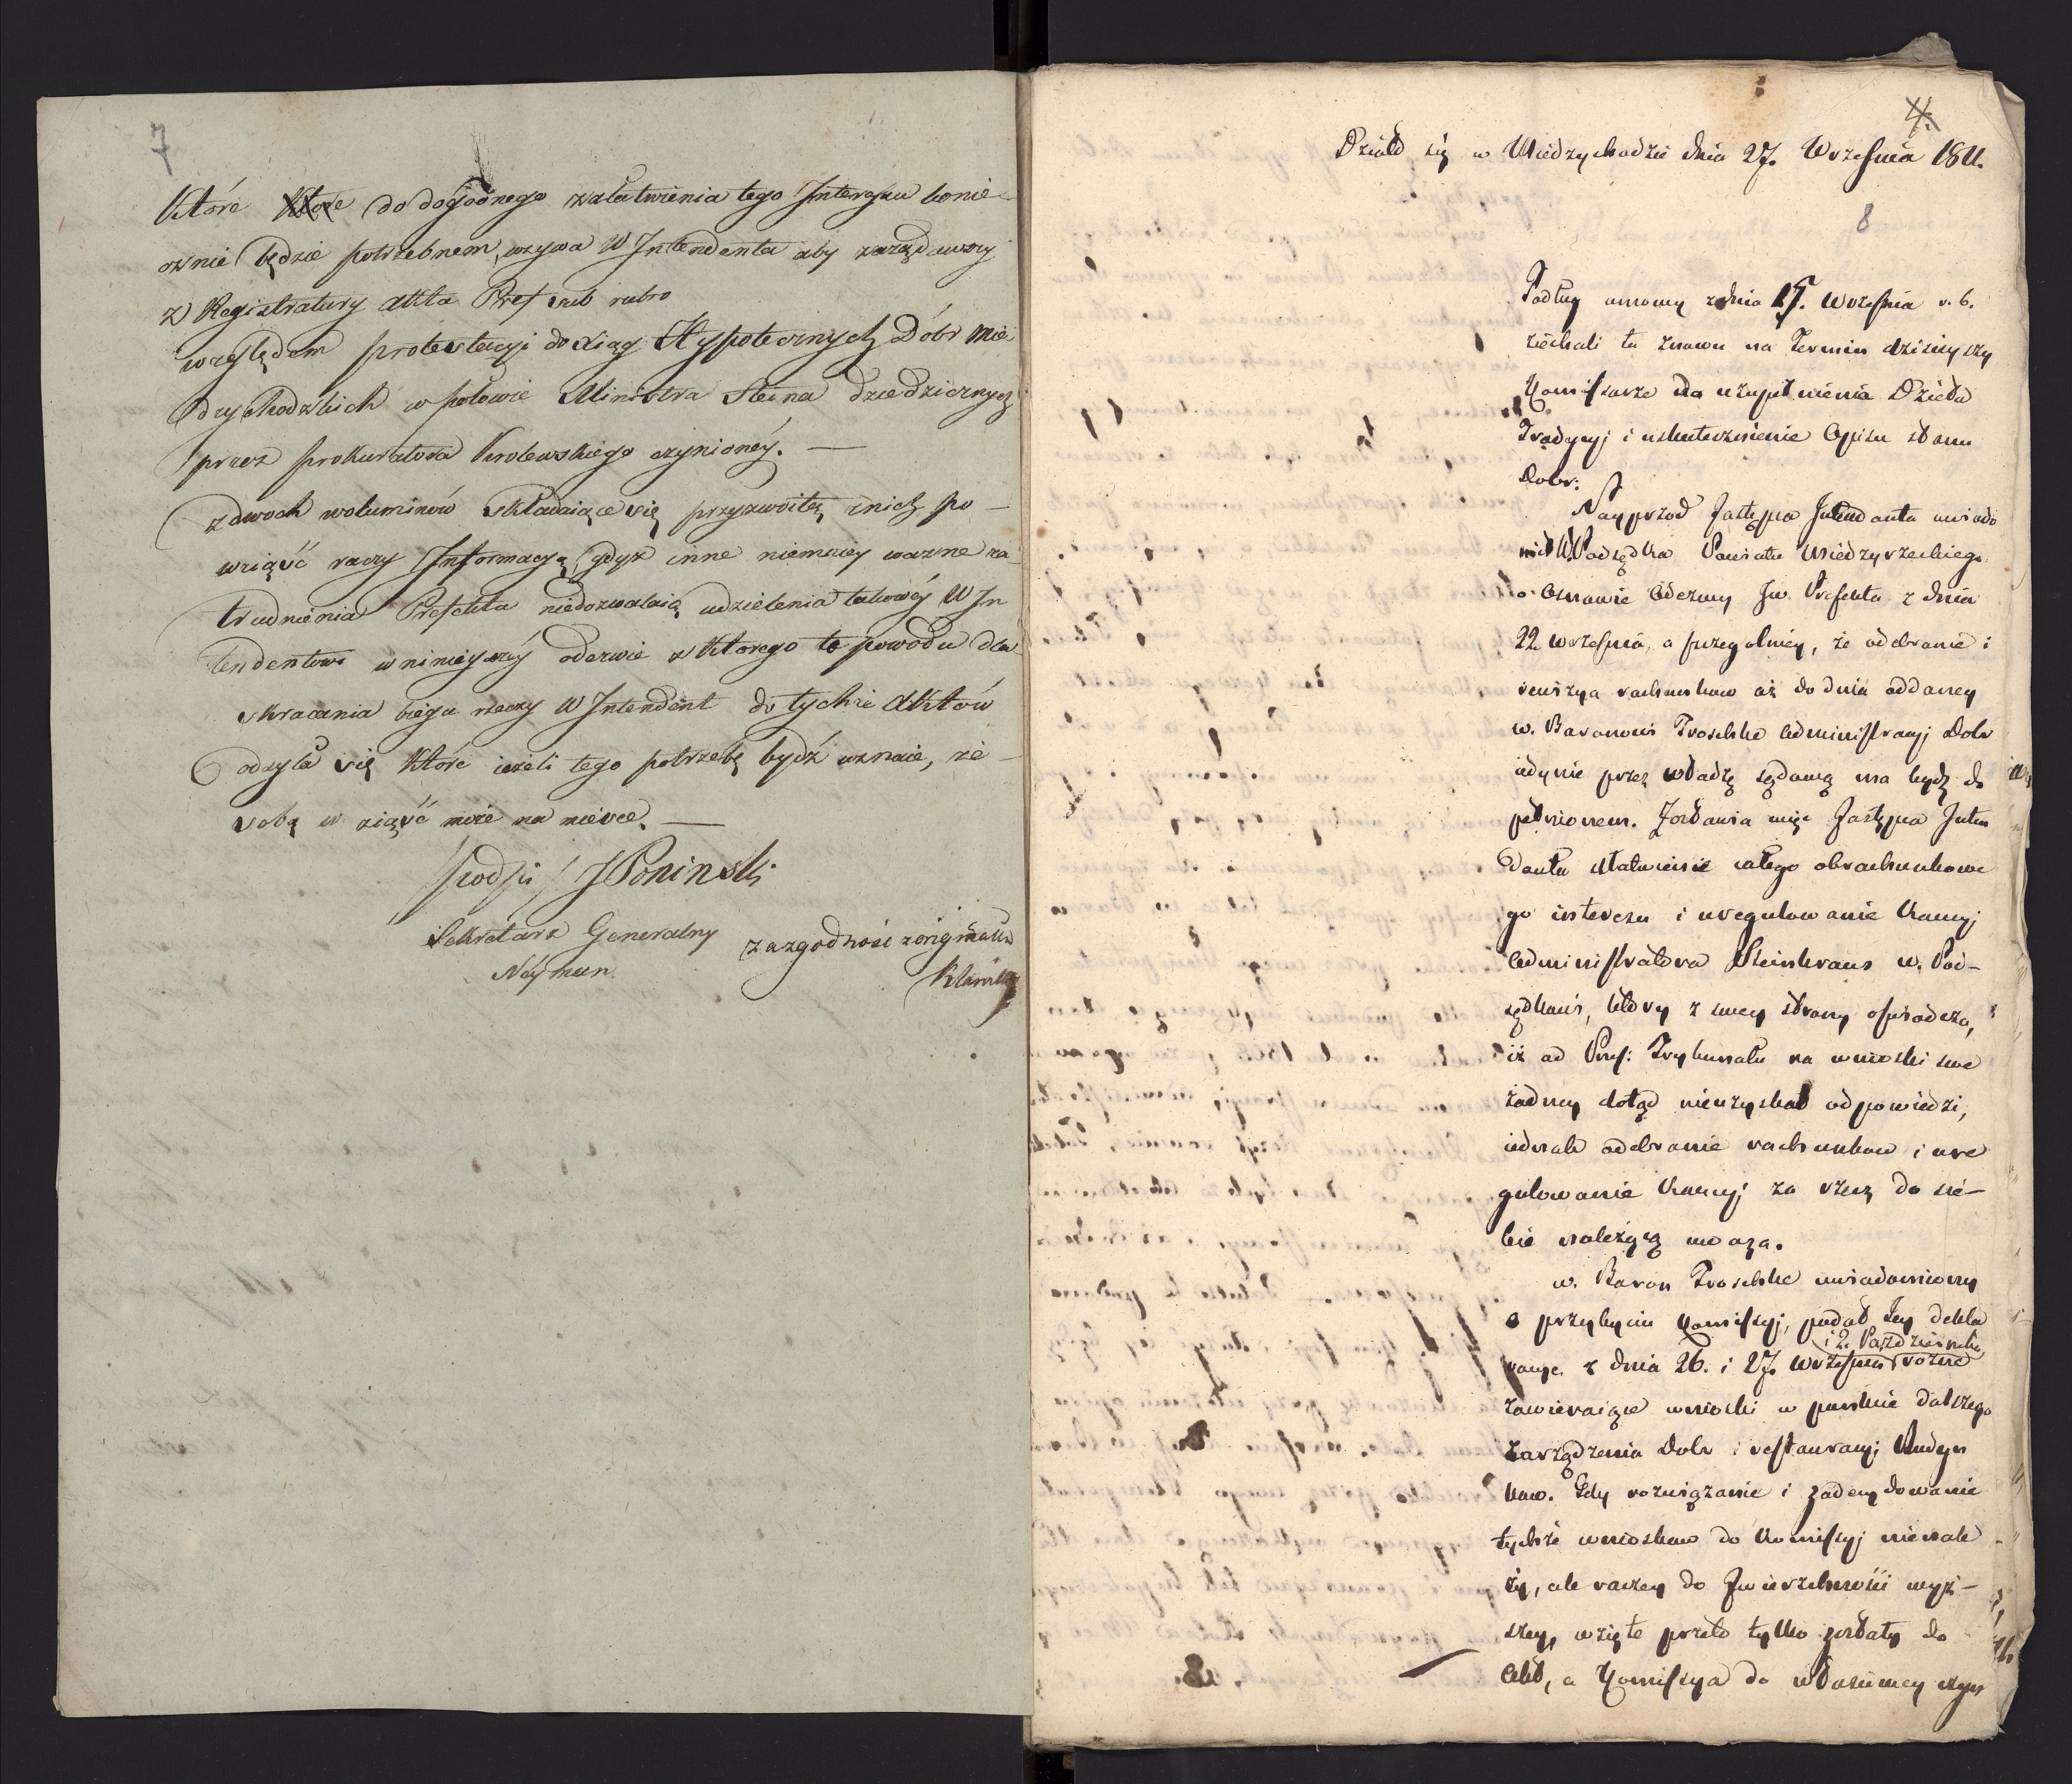 7
Które do dogodnego załatwienia tego Interessu konie-
cznie będzie potrzebnem, wzywa W Intendenta aby zarządawszy
z Registratury akta Pref sub rubro
względem protestacyi do xiąg Hypotecznych Dóbr Mie
dzychodzkich w połowie Ministra Steina dziedzicznych
przez prokuratora Krolewskiego czynionéy. —
z dwoch woluminów składaiące się przyzwoitą z nich po-
wziąść raczy Informacyą, gdyż inne niemniey wazne za
trudnienia Prefekta niedozwalaią udzielenia takowéy W In
tendentowi w ninieyszéy odezwie z ktorego to powodu dla
skracania biegu rzeczy W Intendent do tychże Aktów
odsyła się które ieżeli tego potrzebę bydź uznaie, ze
sobą wziąść może na mieysce. —
/podpis/ J Poninski
Sekretarz Generalny
Neyman
za zgodność z originałem
4.
Działo się w Miedzychodzie dnia 27. Września 1811.
8
Podług umowy z dnia 15. Września r. b.
ziechali tu znowu na Termin dzisieyszy
Komissarze do uzupełnienia Dzieła
Tradycyj i uskutecznienie Opisu stanu
Dobr:
Nayprzod Zastępca Intendanta uwiado
mił W. Podsędka Powiatu Miedzyrzeckiego
o osnowie Odezwy Jw. Prefekta z dnia
22. września, a szczegolniey, że odebranie i
rewizya rachunkow aż do dnia oddaney
w. Baronowi Troschke Administracyj Dobr
iedynie przez władzę sądową ma bydź do
pełnionem. Zostawia więc Zastępca Inten
danta ułatwienie całego obrachunkowe
go interesu i uregulowanie Kaucyj
Administratora Steinkraus w. Pod-
sędkowi, który z swey strony oświadcza,
iż od Pref: Trybunału na wnioski swe
żadney dotąd nieuzyskał odpowiedzi,
iednak odebranie rachunkow i ure
gulowanie Kaucyj za rzecz do sie-
bie należącą uważa.
w. Baron Troschke uwiadomiony
o przybyciu Komissyj, podał Jey dekla
i 2. Pazdziernika
racye z dnia 26. i 27. Września rożne
zawieraiące wnioski w punkcie dalszego
zarządzenia Dobr i restauracyj Budyn
kow. Gdy rozwiązanie i zadecydowanie
tychże wnioskow do Komissyj nienale
ży, ale raczey do Zwierzchności wyż-
szey, wzięte przeto tylko zostały do
Akt, a Komissya do własciwey czyn